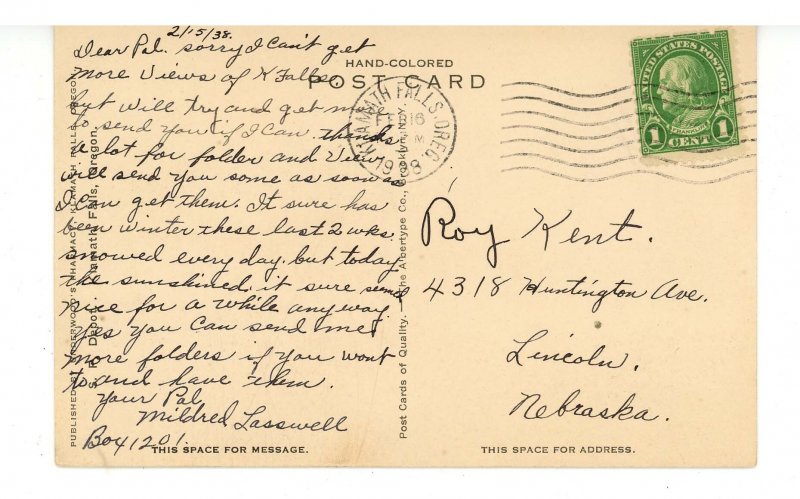 2/15/38.
Dear Pal. sorry I can't get
more Views of K Falls.
but will try and get more
to send you if I can. thanks
a lot for folder and View
will send you some as soon as
I can get them. It sure has
been winter these last 2 wks.
snowed every day. but today
the sunshined. it sure
nice for a while any way.
Yes you can send me
more folders if you want
to and have them.
Your Pal
Mildred Lasswell
Box 1201.
HAND-COLORED
POST CARD
THIS SPACE FOR MESSAGE.
THIS SPACE FOR ADDRESS.
PUBLISHED BY UNDERWOOD'S PHARMACY, KLAMATH FALLS, OREGON
S. P. Depot, Klamath Falls, Oregon.
Post Cards of Quality. — The Albertype Co., Brooklyn, N.Y.
KLAMATH FALLS, OREG.
FEB 16
M
1938
UNITED STATES POSTAGE
FRANKLIN
1 CENT 1
Roy Kent.
4318 Huntington Ave.
Lincoln.
Nebraska.